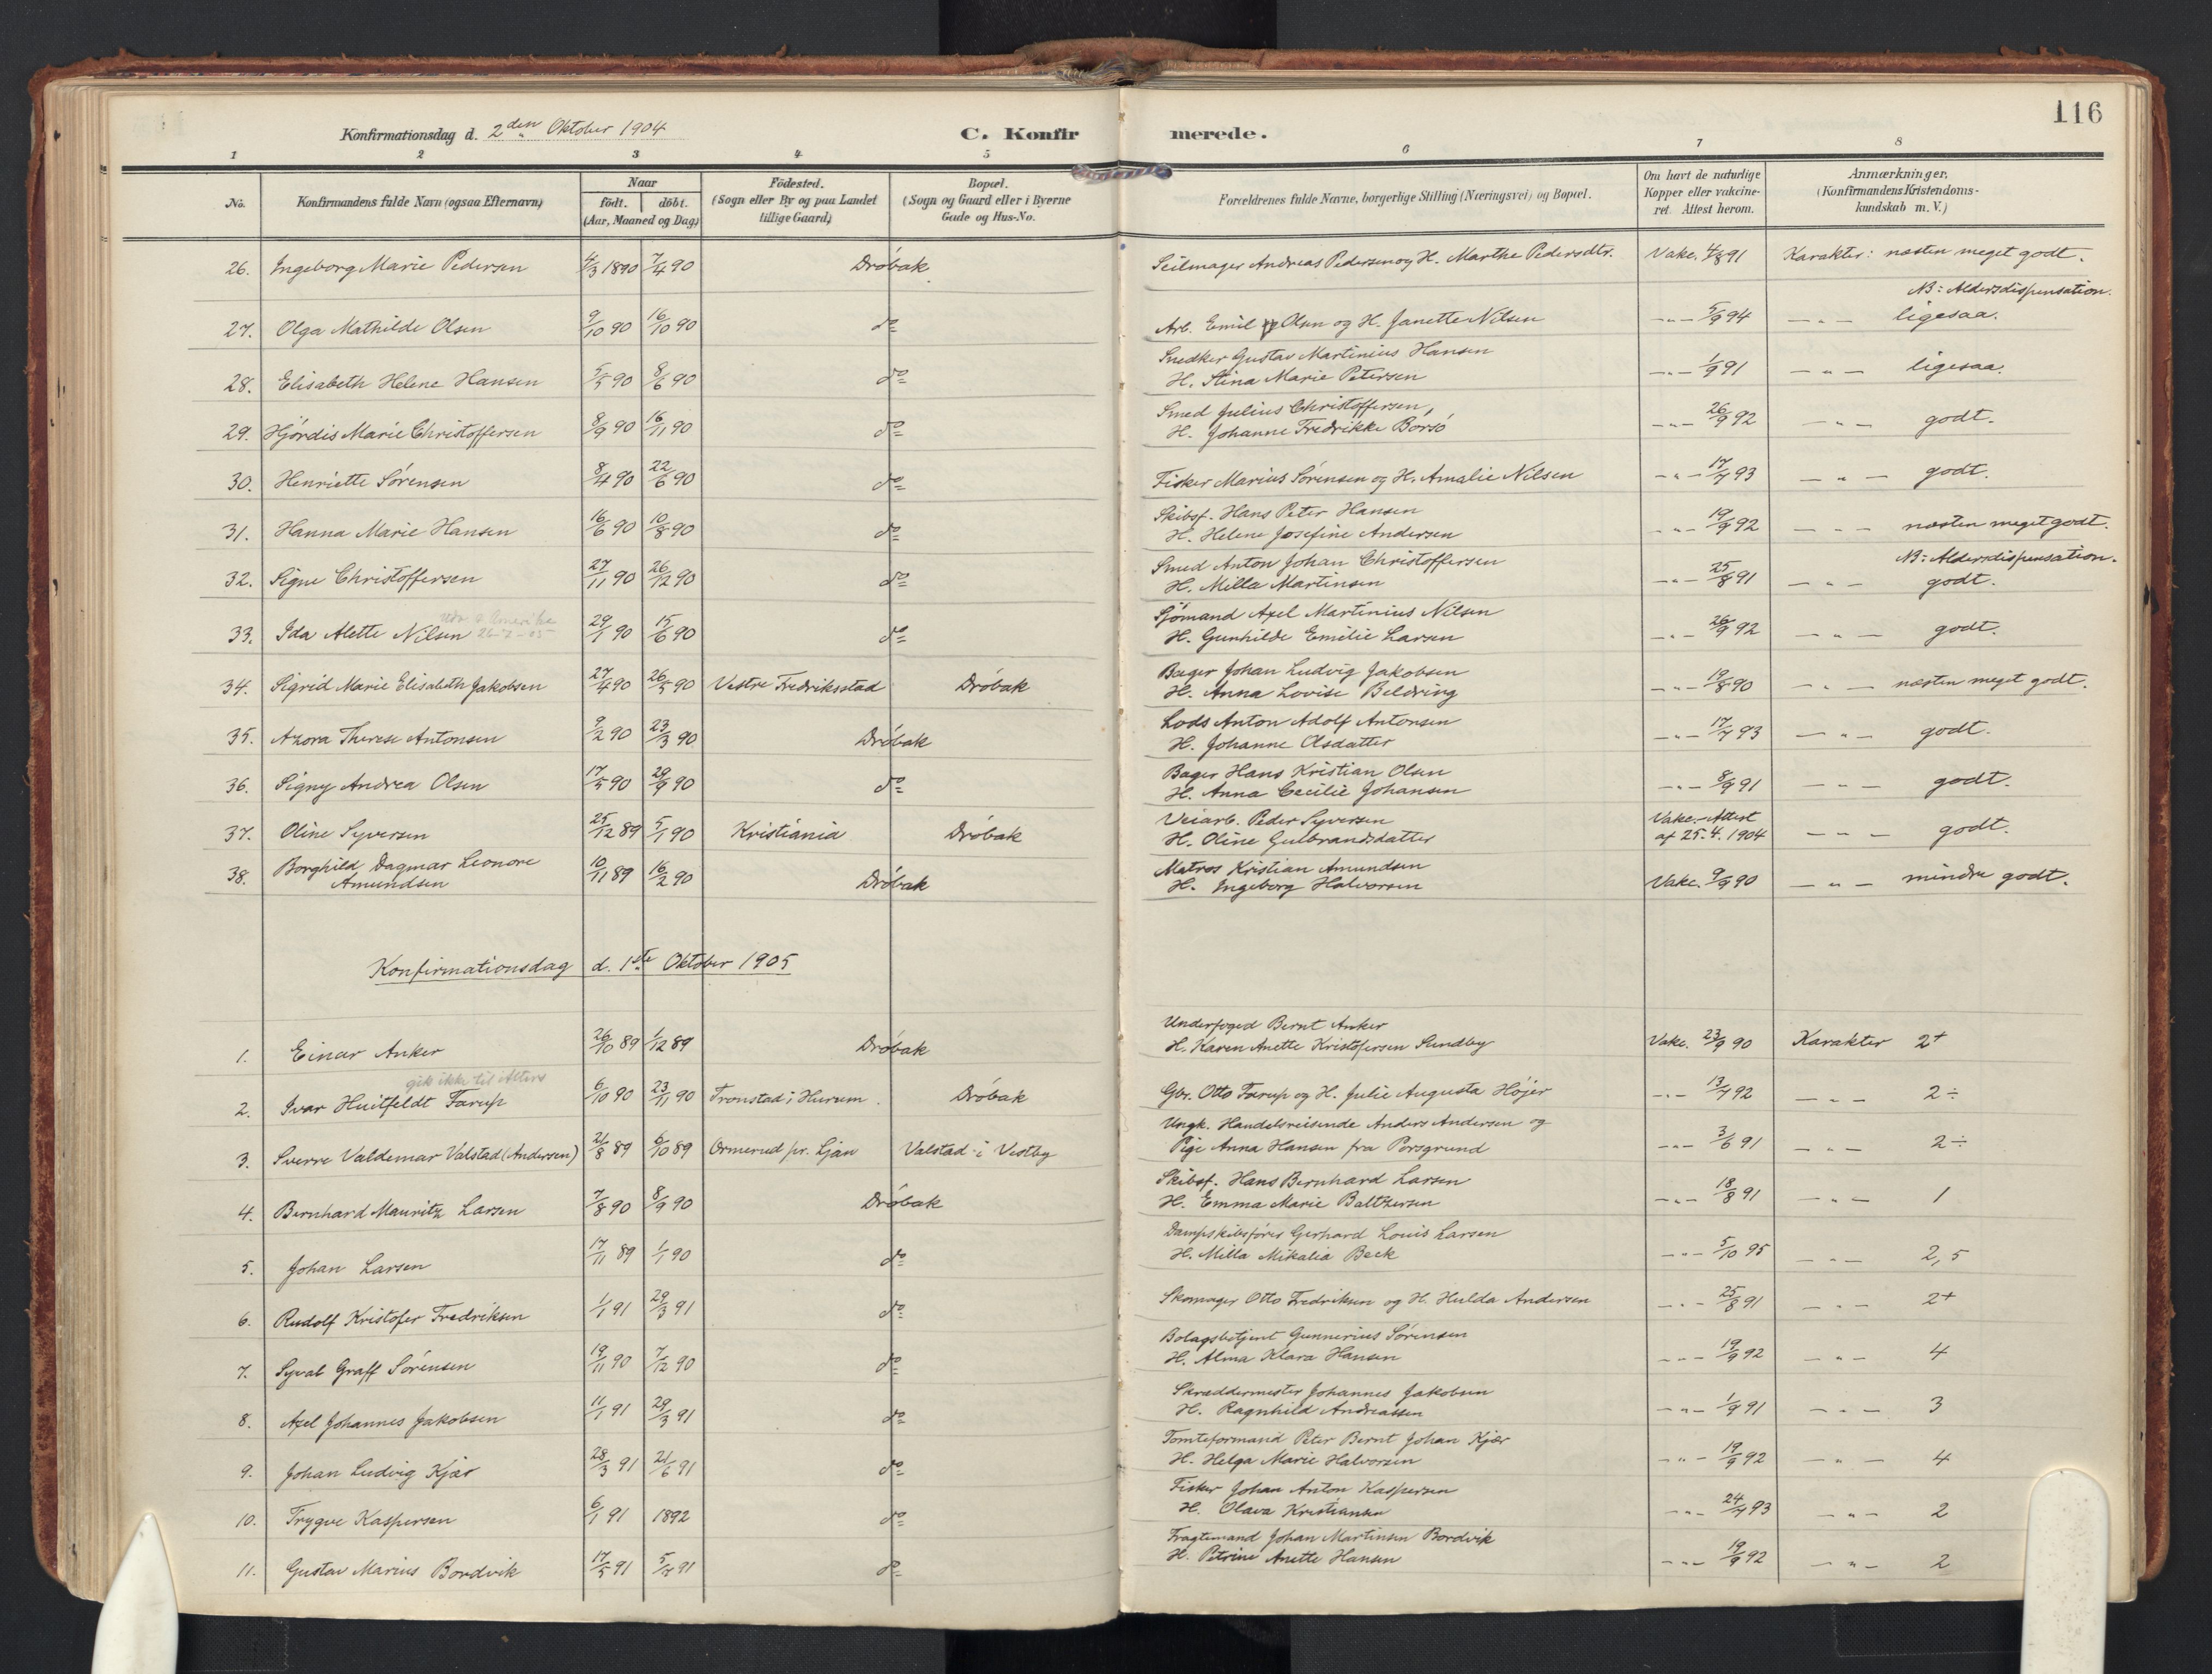 116
Konfirmationsdag d. 2den Oktober 1904
C. Konfirmerede.
1 2 3 4 5 6 7 8
No.
Konfirmandens fulde Navn (ogsaa Efternavn)
Naar
födt. döbt.
(Aar, Maaned og Dag)
Födested.
(Sogn eller By og paa Landet
tillige Gaard)
Bopæl.
(Sogn og Gaard eller i Byerne
Gade og Hus-No.
Forældrenes fulde Navne, borgerlige Stilling (Næringsvei) og Bopæl.
Om havt de naturlige
Kopper eller vakcine-
ret. Attest herom.
Anmærkninger.
(Konfirmandens Kristendoms-
kundskab m. V.)
26. Ingeborg Marie Pedersen 4/3 1890 7/4 90 Drøbak Seilmager Andreas Pedersen og H. Marthe Pedersdtr. Vakc. 4/8 91 Karakter: næsten meget godt.
NB: Aldersdispensation.
27. Olga Mathilde Olsen 9/10 90 16/10 90 do Arb. Emil Olsen og H. Janette Nilsen -"- 5/9 94 -"- ligesaa.
28. Elisabeth Helene Hansen 5/5 90 8/6 90 do Snedker Gustav Martinius Hansen
H. Stina Marie Petersen -"- 1/9 91 -"- ligesaa.
29. Hjördis Marie Christoffersen 8/9 90 16/11 90 do Smed Julius Christoffersen,
H. Johanne Fredrikke Borsø -"- 26/9 92 -"- godt.
30. Henriette Sørensen 8/4 90 22/6 90 do Fisker Marius Sørensen og H. Amalie Nilsen -"- 17/7 93 -"- godt.
31. Hanna Marie Hansen 16/6 90 10/8 90 do Skibsf. Hans Peter Hansen
H. Helene Josefine Andersen -"- 19/9 92 -"- næsten meget godt.
NB: Aldersdispensation.
32. Signe Christoffersen 27/11 90 26/12 90 do Smed Anton Johan Christoffersen
H. Milla Martinsen -"- 25/8 91 -"- godt.
33. Ida Alette Nilsen 29/1 90 15/6 90 do Sjömand Axel Martinius Nilsen
H. Gunhilde Emilie Larsen -"- 26/9 92 -"- godt.
34. Sigrid Marie Elisabeth Jakobsen 27/4 90 26/5 90 Vestre Fredriksstad Drøbak Bager Johan Ludvig Jakobsen
H. Anna Lovise Beldring -"- 19/8 90 -"- næsten meget godt.
35. Azora Therese Antonsen 9/2 90 23/3 90 Drøbak Lods Anton Adolf Antonsen
H. Johanne Olsdatter -"- 17/7 93 -"- godt.
36. Signy Andrea Olsen 17/5 90 29/9 90 do Bager Hans Kristian Olsen
H. Anna Cecilie Johansen -"- 8/9 91 -"- godt.
37. Oline Syversen 25/12 89 5/1 90 Kristiania Drøbak Veiarb. Peder Syversen
H. Oline Gulbrandsdatter Vakc.-Attest
af 25.4.1904 -"- godt.
38. Borghild Dagmar Leonore
Amundsen 10/11 89 16/2 90 Drøbak Matros Kristian Amundsen
H. Ingeborg Halvorsen Vakc. 9/9 90 -"- mindre godt.
Konfirmationsdag d. 1ste Oktober 1905
1. Einar Anker 26/10 89 1/12 89 Drøbak Underfoged Bernt Anker
H. Karen Anette Kristofersen Sundby Vakc. 23/9 90 Karakter 2+
gik ikke til Alters
2. Ivar Huitfeldt Farup 6/10 90 23/11 90 Tronstad i Hurum. Drøbak Gbr. Otto Farup og H. Julie Augusta Höjer -"- 13/7 92 -"- 2÷
3. Sverre Valdemar Valstad (Andersen) 21/8 89 6/10 89 Ormerud pr. Ljan Valstad i Vestby Ungk. Handelsreisende Anders Andersen og
Pige Anna Hansen fra Porsgrund -"- 3/6 91 -"- 2÷
4. Bernhard Mauritz Larsen 7/8 90 8/9 90 Drøbak Skibsf. Hans Bernhard Larsen
H. Emma Marie Baltzersen -"- 18/8 91 -"- 1
5. Johan Larsen 17/11 89 1/1 90 do Dampskibsförer Gerhard Louis Larsen
H. Milla Mikalia Beck -"- 5/10 95 -"- 2,5
6. Rudolf Kristofer Fredriksen 1/1 91 29/3 91 do Skomager Otto Fredriksen og H. Hulda Andersen -"- 25/8 91 -"- 2+
7. Syval Graff Sörensen 19/11 90 7/12 90 do Bolagsbetjent Gunnerius Sörensen
H. Alma Klara Hansen -"- 19/9 92 -"- 4
8. Axel Johannes Jakobsen 11/1 91 29/3 91 do Skræddermester Johannes Jakobsen
H. Ragnhild Andreassen -"- 1/9 91 -"- 3
9. Johan Ludvig Kjær 28/3 91 21/6 91 do Tomteformand Peter Bernt Johan Kjær
H. Helga Marie Halvorsen -"- 19/9 92 -"- 4
10. Trygve Kaspersen 6/1 91 1892 do Fisker Johan Anton Kaspersen
H. Olava Kristiansen -"- 24/7 93 -"- 2
11. Gustav Marius Bordvik 17/5 91 5/7 91 do Fragtemand Johan Martinsen Bordvik
H. Petrine Anette Hansen -"- 19/9 92 -"- 2